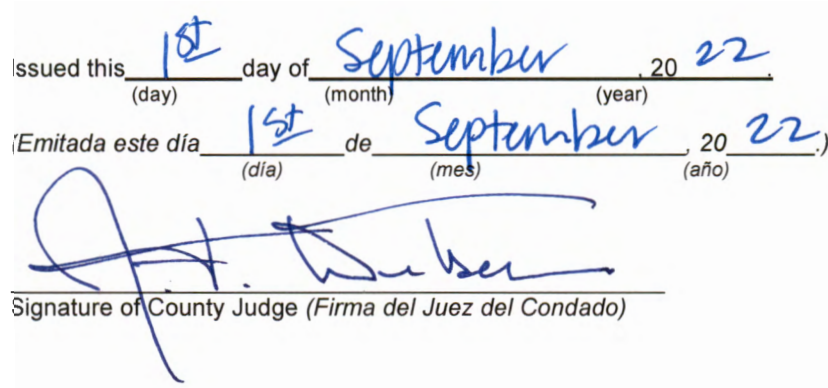 Issued this 1st day of September, 20 22.
(day) (month) (year)
(Emitada este día 1st de September, 20 22.)
(día) (mes) (año)
Signature of County Judge (Firma del Juez del Condado)